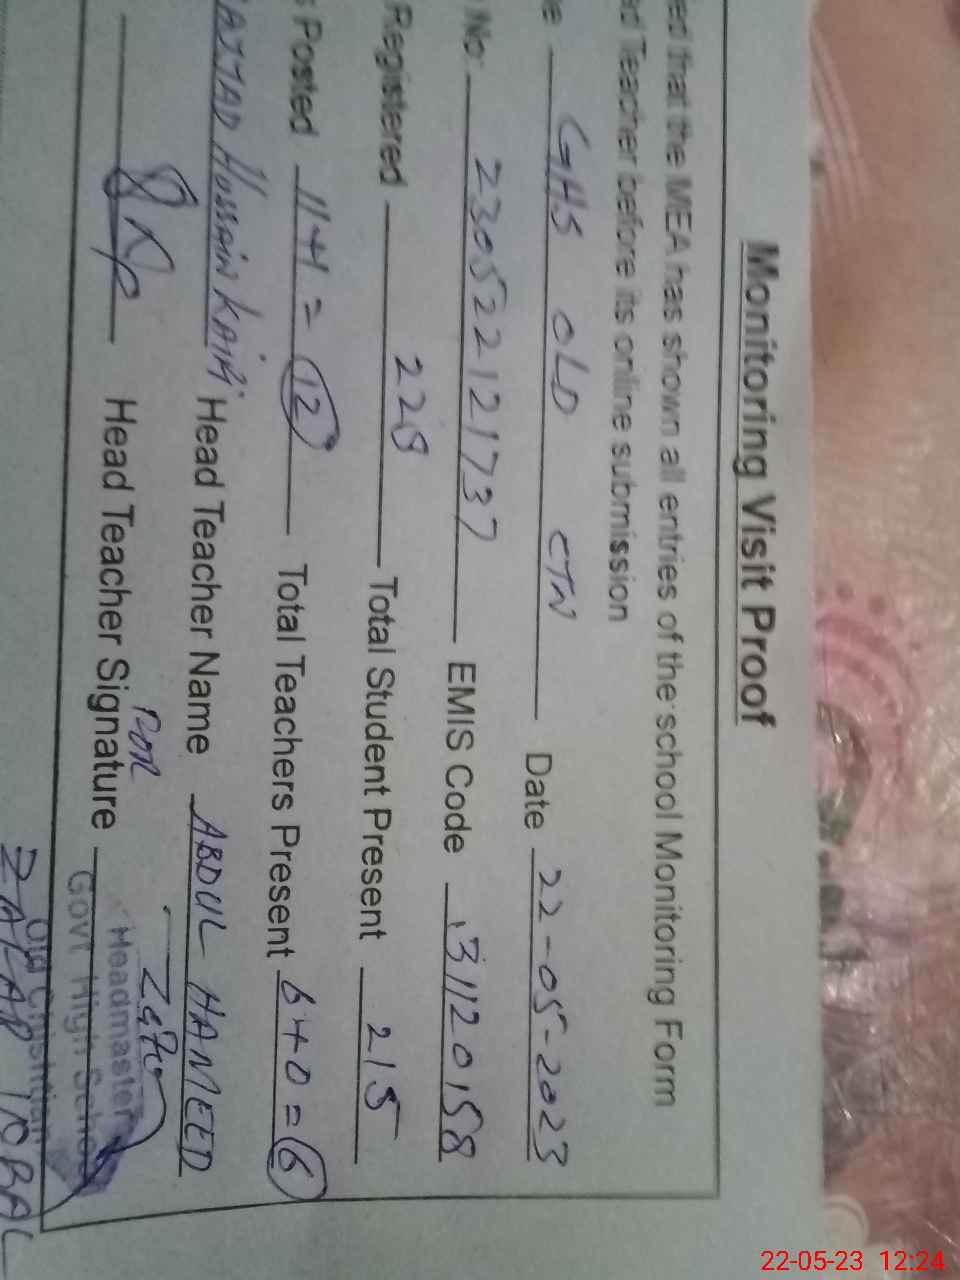 Monitoring Visit Proof
ed that the MEA has shown all entries of the school Monitoring Form
ed Teacher before its online submission
e GHS OLD CTN Date 22-05-2023
No: 230522121737 EMIS Code 31120158
Registered 228 Total Student Present 215
s Posted 11+1=12 Total Teachers Present 6+0=6
Hussain Head Teacher Name ABDUL HAMEED
Head Teacher Signature
For
Headmaster
Govt High School
Old Christian
ZAFAR IQBAL
22-05-23 12:24